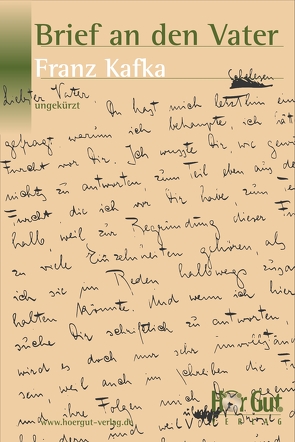 Brief an den Vater
Franz Kafka
ungekürzt
Schelesen
Liebster Vater,
Du hast mich letzthin ein
gefragt warum ich behaupte, ich hät
Furcht vor Dir. Ich wusste Dir, wie gewö
nichts zu antworten, zum Teil eben aus de
Furcht die ich vor Dir habe, zum
halb, weil zur Begründung dieser
zu viele Einzelnheiten gehören, als
ich sie im Reden halbwegs zusa
halten könnte. Und wenn ich hier
suche Dir schriftlich zu antworten
wird es doch nur sehr unvollstän
sein, weil auch im Schreiben die F
und ihre Folgen mich Dir
Hör Gut
VERLAG
www.hoergut-verlag.de